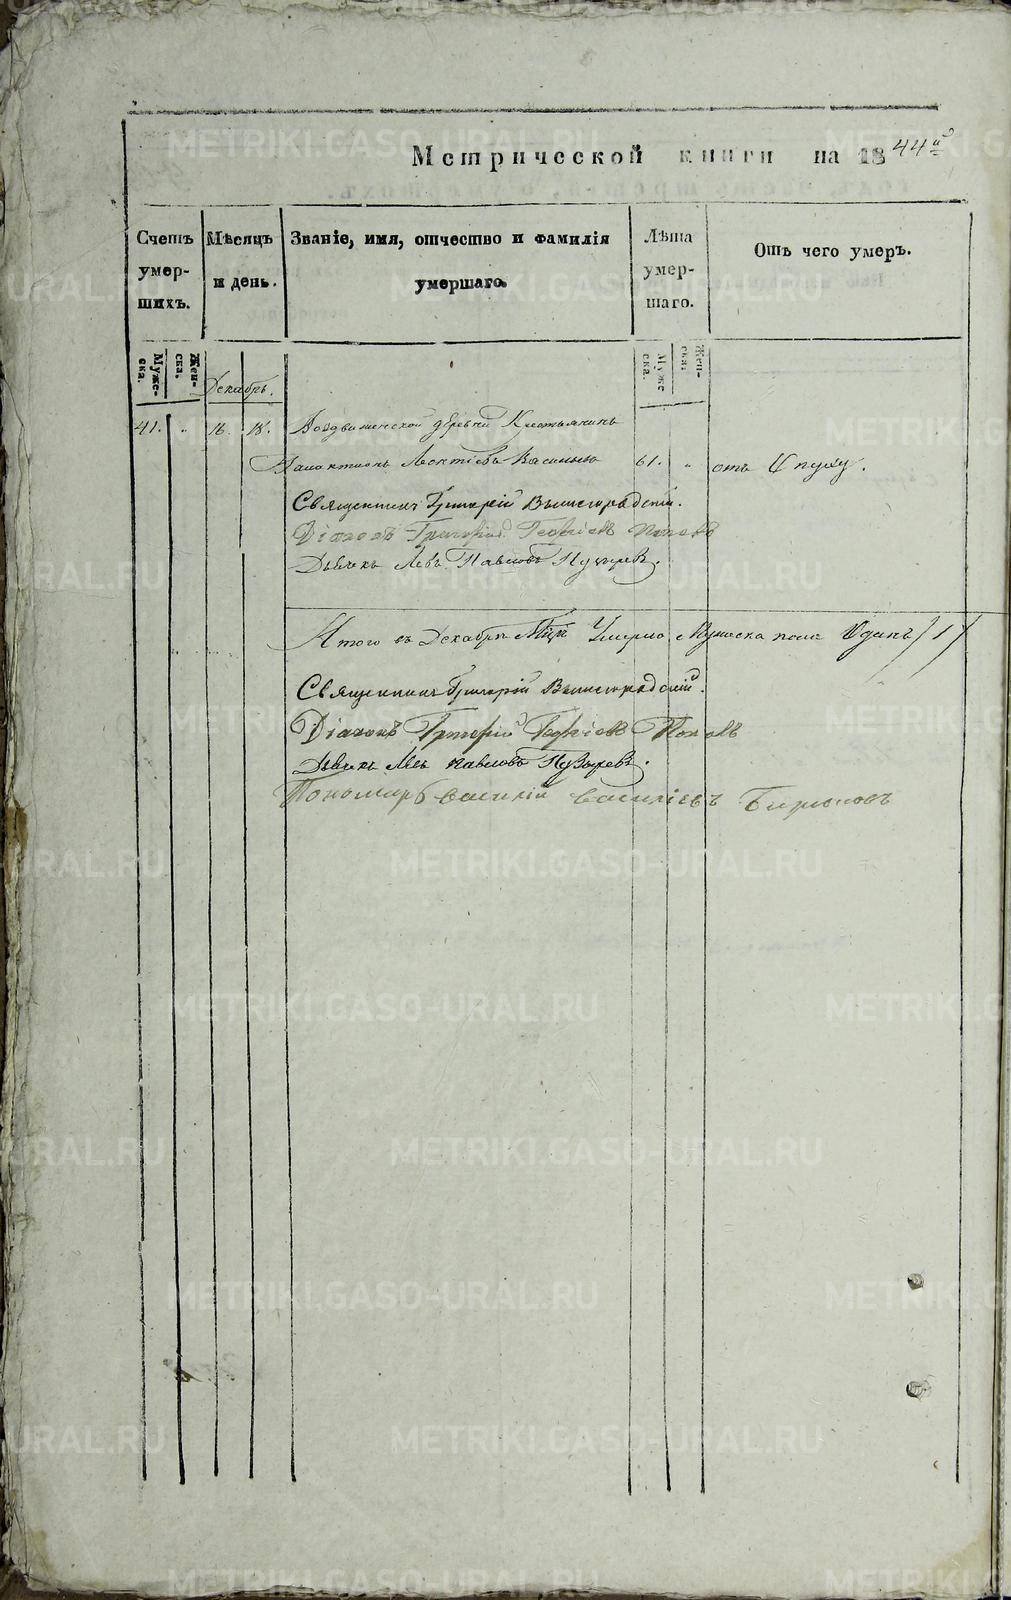 Метрической книги на 1844й
Счетъ умершихъ.
Мѣсяцъ и день.
Званіе, имя, отчество и фамилія умершаго.
Лѣта умершаго.
Отъ чего умеръ.
Мужеска.
Женска.
Мужеска.
Женска.
Декабрь.
41. „ 16. 18. Воздвиженской деревни Крестьянинъ
Галактіонъ Леонтіевъ 61. „ отъ Опуху.
Священникъ Григорій Вышегородскій.
Діаконъ Григорій Георгіевъ Поповъ
Дьячекъ Левъ Павловъ Пузыревъ.
Итого въ Декабрѣ Мцѣ Умерло Мужеска пола Одинъ /1/
Священникъ Григорій Вышегородскій.
Діаконъ Григорій Георгіевъ Поповъ
Дьячекъ Левъ Павловъ Пузыревъ.
Пономарь Василій Василіевъ Бирюковъ
METRIKI.GASO-URAL.RU